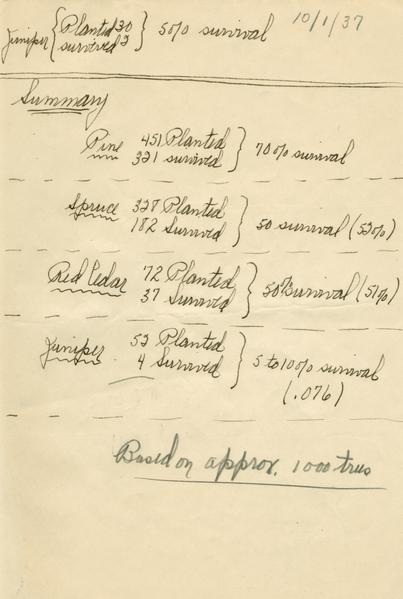 10/1/37
Juniper { Planted 30
survived 2 } 5% survival
Summary
Pine 451 Planted
321 survived } 70% survival
Spruce Planted
182 Survived } 50 survival (52%)
Red Cedar 72 Planted
37 Survived } 50% survival (51%)
Juniper Planted
4 Survived } 5 to 10% survival
(.076)
Based on approx. 1000 trees